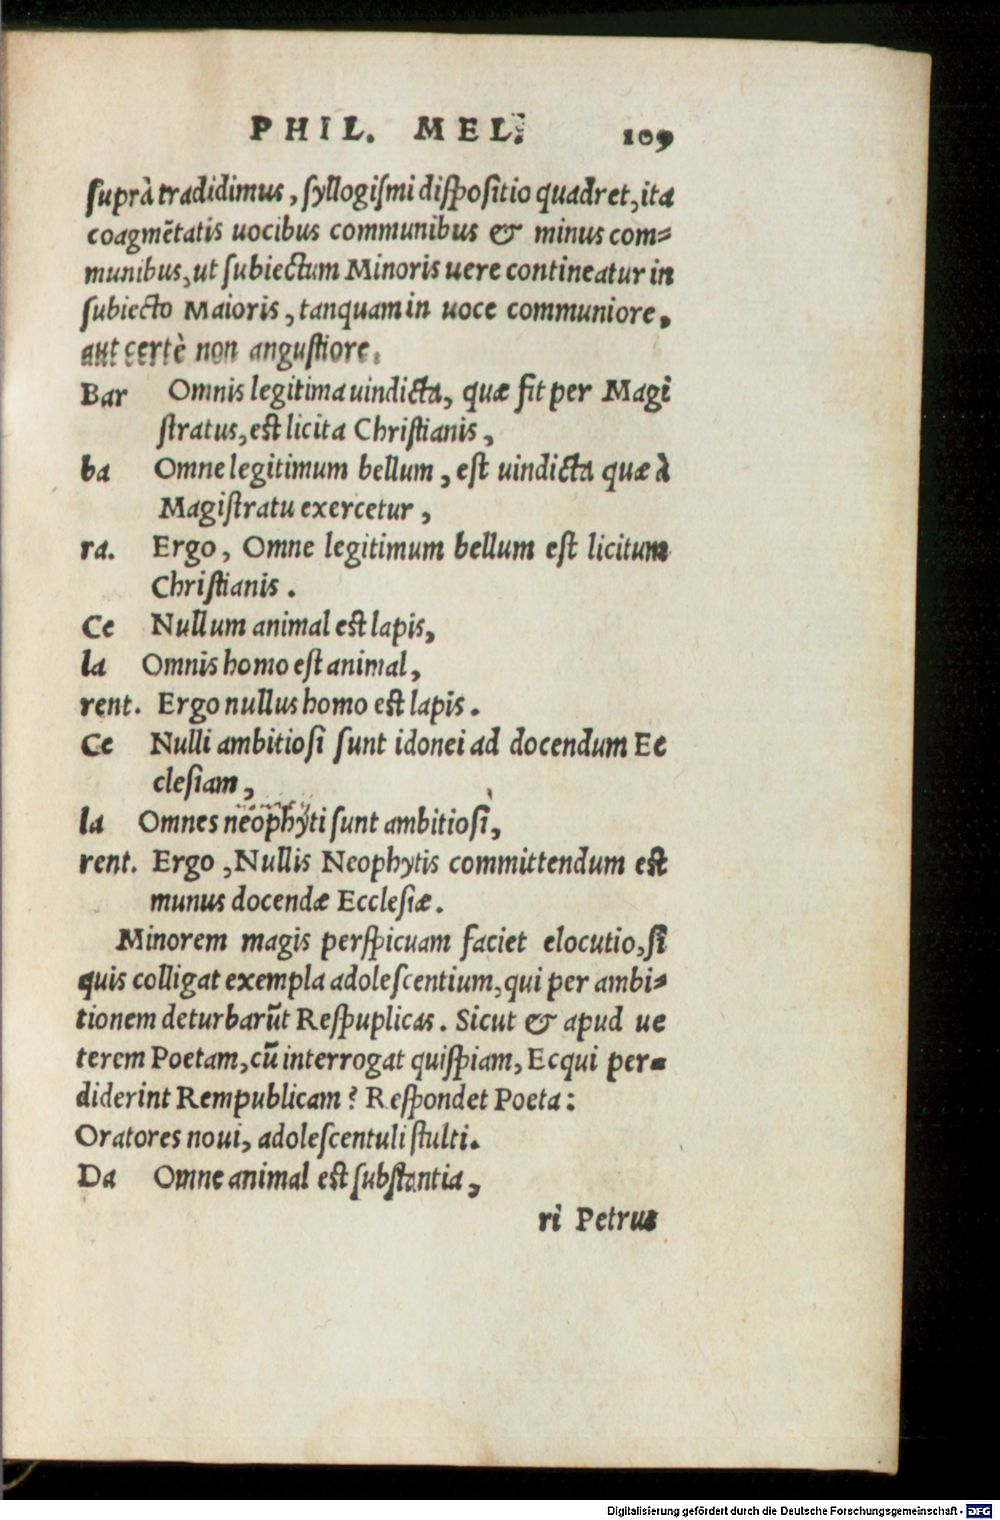 PHIL. MEL. 109
suprà tradidimus, syllogismi dispositio quadret, ita
coagmẽtatis uocibus communibus & minus com-
munibus, ut subiectum Minoris uere contineatur in
subiecto Maioris, tanquam in uoce communiore,
aut certè non angustiore.
Bar Omnis legitima uindicta, quæ fit per Magi
stratus, est licita Christianis,
ba Omne legitimum bellum, est uindicta quæ à
Magistratu exercetur,
ra. Ergo, Omne legitimum bellum est licitum
Christianis.
Ce Nullum animal est lapis,
la Omnis homo est animal,
rent. Ergo nullus homo est lapis.
Ce Nulli ambitiosi sunt idonei ad docendum Ec
clesiam,
la Omnes neophyti sunt ambitiosi,
rent. Ergo, Nullis Neophytis committendum est
munus docendæ Ecclesiæ.
Minorem magis perspicuam faciet elocutio, si
quis colligat exempla adolescentium, qui per ambi-
tionem deturbarũt Respuplicas. Sicut & apud ue
terem Poetam, cũ interrogat quispiam, Ecqui per-
diderint Rempublicam? Respondet Poeta:
Oratores noui, adolescentuli stulti.
Da Omne animal est substantia,
ri Petrus
Digitalisierung gefördert durch die Deutsche Forschungsgemeinschaft - DFG